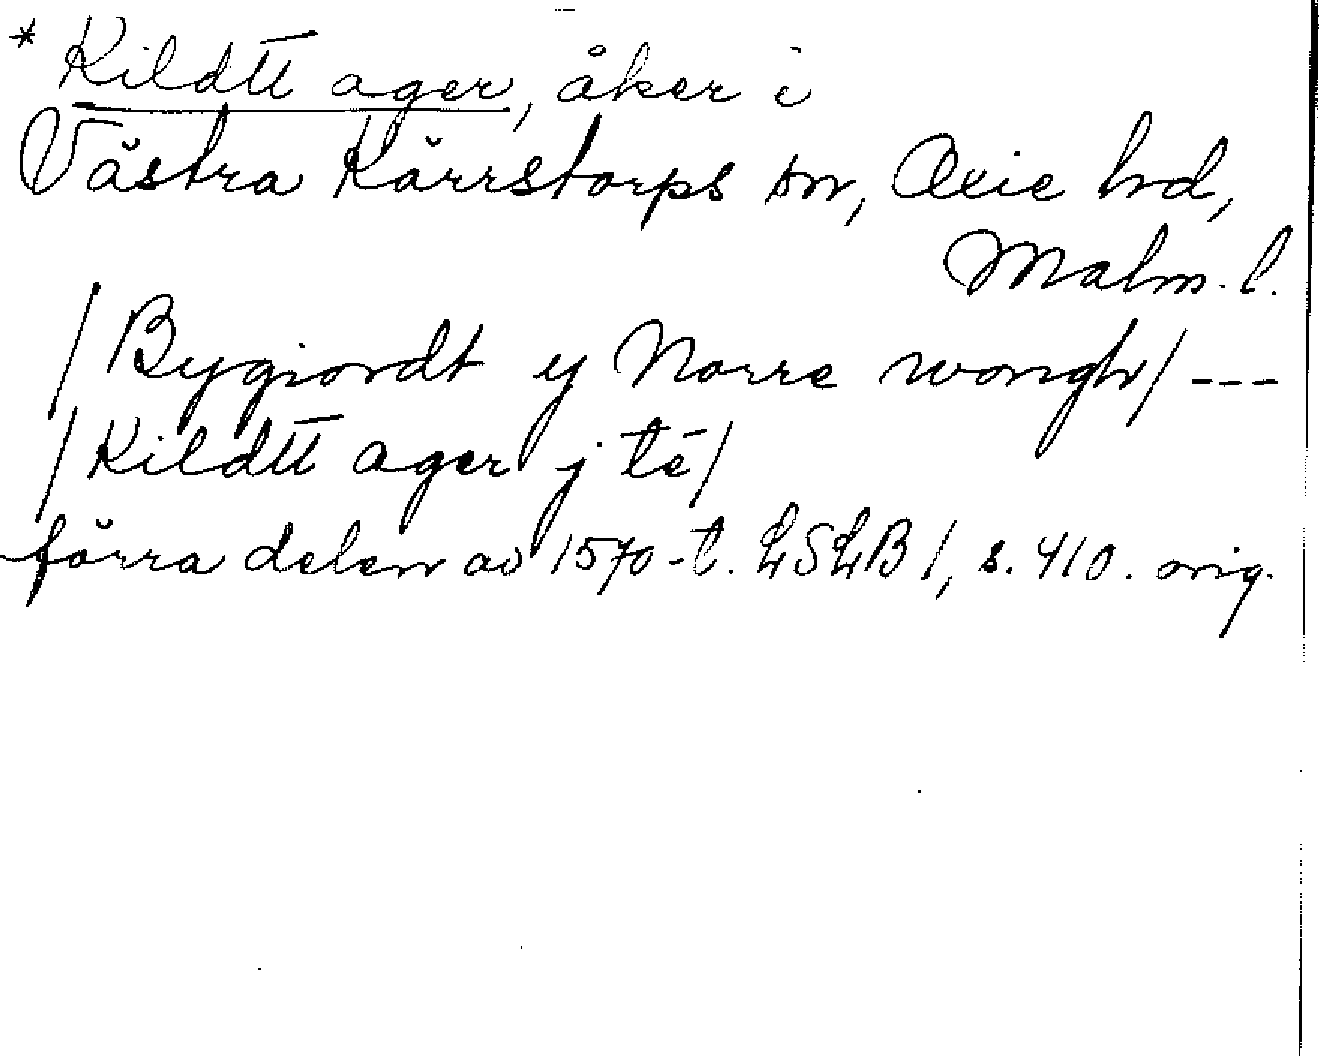 * Kildtt ager, åker i
Västra Kärrstorps sn, Oxie hd,
Malm. l.
/Bygiordt y Norre wongh/ ---
/Kildtt ager j té/
förra delen av 1570-t. LSLB 1, s. 410. orig.